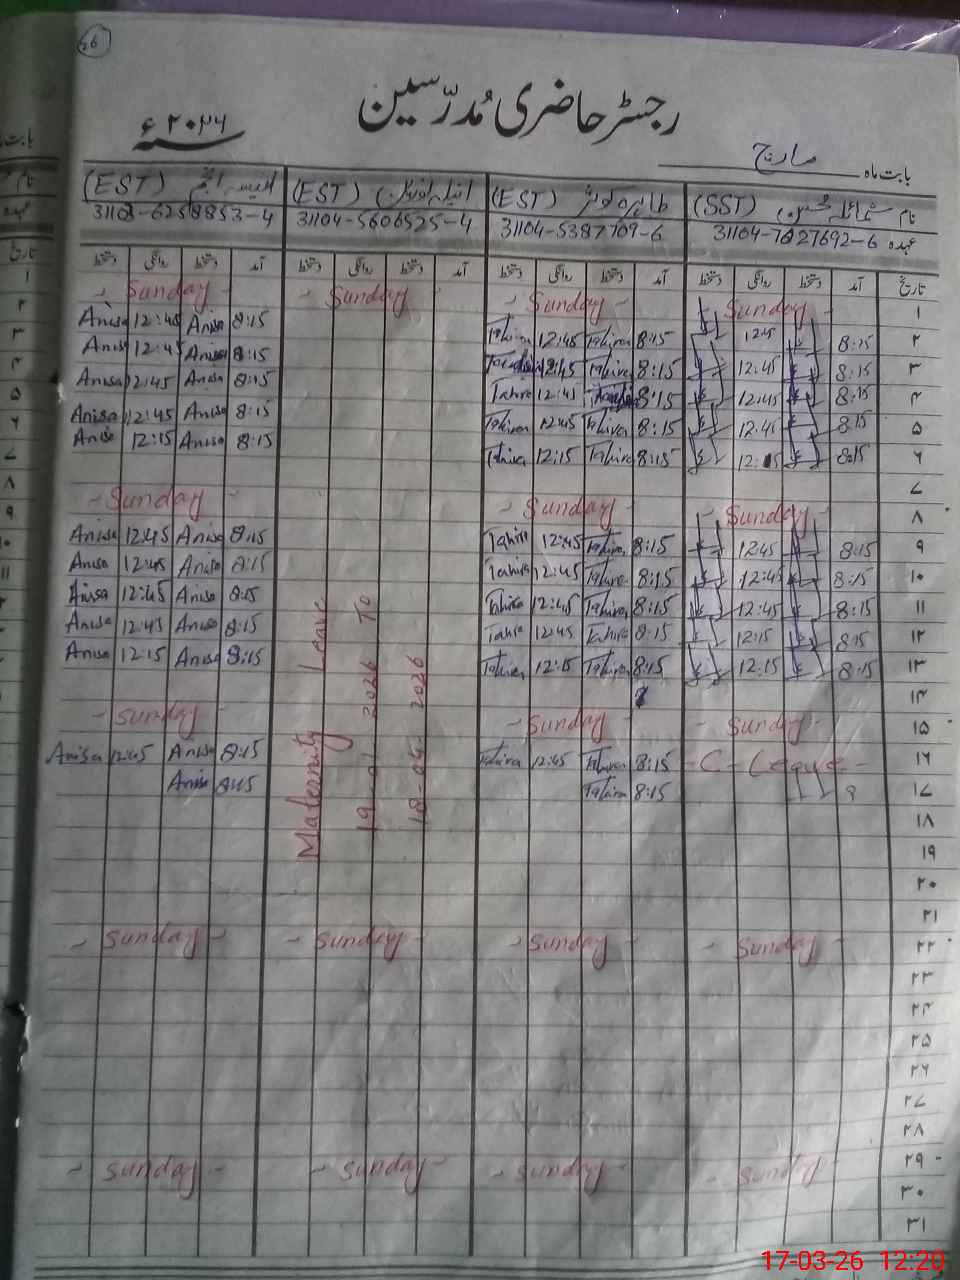 26
رجسٹر حاضری مُدرّسین
سنہ ۲۰۲۶ء
بابت ماہ مارچ
نام شمائلہ محسن (SST) طاہرہ کوثر (EST) انیلہ نورین (EST) انیسہ انجم (EST)
عہدہ 31104-5387709-6 31104-5606525-4
تاریخ آمد دستخط روانگی دستخط آمد دستخط روانگی دستخط آمد دستخط روانگی دستخط آمد دستخط روانگی دستخط
۱ Sunday Sunday Sunday Sunday
۲ 8:15 12:45 8:15 Tahira 12:45 Tahira 8:15 Anisa 12:45 Anisa
۳ 8:15 12:45 8:15 Tahira 12:45 8:15 Anisa 12:45 Anisa
۴ 8:15 12:45 8:15 12:45 Tahira 8:15 Anisa 12:45 Anisa
۵ 8:15 12:45 8:15 Tahira 12:45 Tahira 8:15 Anisa 12:45 Anisa
۶ 8:15 12:15 8:15 Tahira 12:15 Tahira 8:15 Anisa 12:15 Anisa
۷
۸ Sunday Sunday Sunday
۹ 8:15 12:45 8:15 Tahira 12:45 Tahira 8:15 Anisa 12:45 Anisa
۱۰ 8:15 12:45 8:15 Tahira 12:45 Tahira 8:15 Anisa 12:45 Anisa
۱۱ 8:15 12:45 8:15 Tahira 12:45 Tahira 8:15 Anisa 12:45 Anisa
۱۲ 8:15 12:15 8:15 Tahira 12:45 Tahira 8:15 Anisa 12:45 Anisa
۱۳ 8:15 12:15 8:15 Tahira 12:15 Tahira 8:15 Anisa 12:15 Anisa
۱۴
۱۵ Sunday Sunday Sunday
۱۶ C-Leave 8:15 Tahira 12:45 Tahira 8:15 Anisa 12:45 Anisa
۱۷ 8 8:15 Tahira 8:15 Anisa
Maternity Leave
19-01-2026 To
18-04-2026
۱۸
۱۹
۲۰
۲۱
۲۲ Sunday Sunday Sunday Sunday
۲۳
۲۴
۲۵
۲۶
۲۷
۲۸
۲۹ Sunday Sunday Sunday Sunday
۳۰
۳۱
17-03-26 12:20